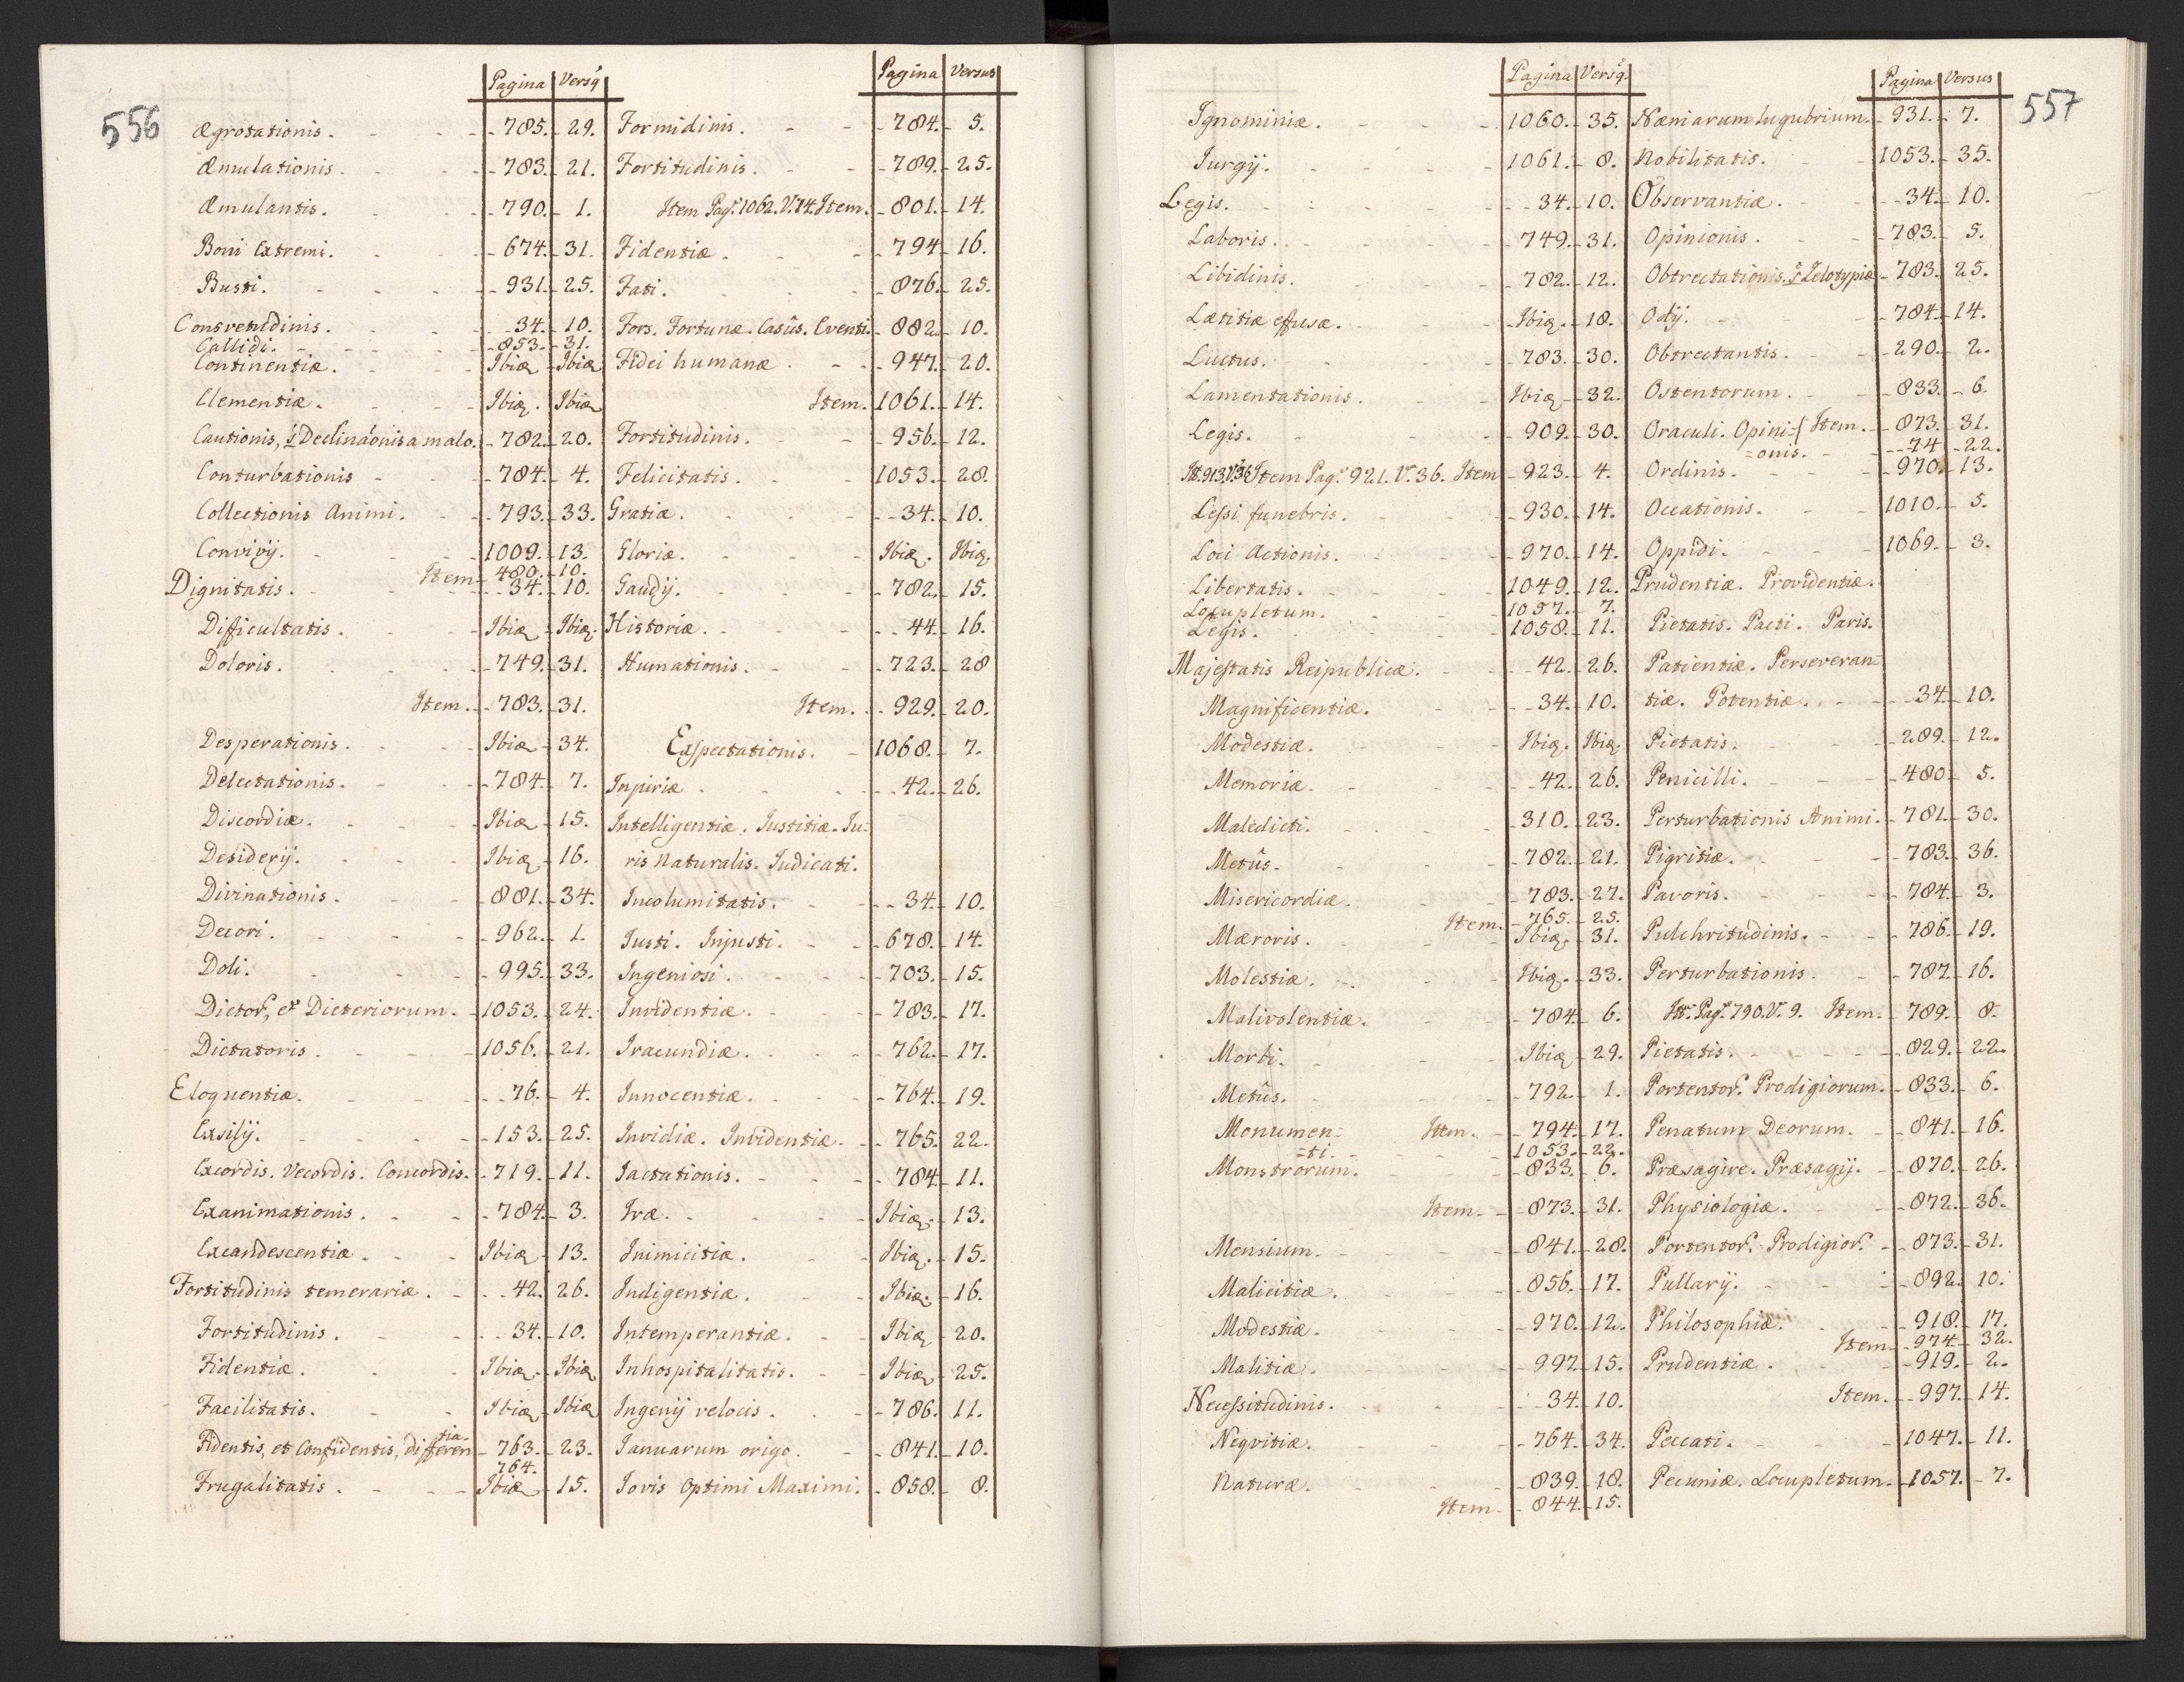 556
Pagina Versq
Ægrotationis. 785. 29.
Æmulationis. 783. 21.
Æmulantis. 790. 1.
Boni Extremi. 674. 31.
Busti. 931. 25.
Consvetudinis. 34. 10.
Callidi. 853. 31.
Continentiæ. Ibiq Ibiq
Clementiæ. Ibiq. Ibiq
Cautionis, Declinaonis a malo. 782. 20.
Conturbationis 784. 4.
Collectionis Animi. 793. 33.
Convivij. 1009. 13.
Item 480. 10.
Dignitatis. 34. 10.
Difficultatis. Ibiq Ibiq.
Doloris. 749. 31.
Item. 783. 31.
Desperationis. Ibiq 34.
Delectationis. 784. 7.
Discordiæ. Ibiq 15.
Desiderij. Ibiq 16.
Divinationis. 881. 34.
Decori. 962. 1.
Doli. 995. 33.
Dictor, et Dicteriorum. 1053. 24.
Dictatoris. 1056. 21.
Eloquentiæ. 76. 4.
Exsilij. 153. 25.
Excordis. Vecordis. Concordis. 719. 11.
Exanimationis. 784. 3.
Excandescentiæ. Ibiq 13.
Fortitudinis temerariæ. 42. 26.
Fortitudinis. 34. 10.
Fidentiæ. Ibiq. Ibiq
Facilitatis. Ibiq Ibiq
tia.
Fidentis, et Confidentis, differen 763. 23.
764.
Frugalitatis. Ibiq 15.
Pagina Versus
Formidinis. 784. 5.
Fortitudinis. 789. 25.
Item Pag. 1062. V. 14. Item. 801. 14.
Fidentiæ. 794 16.
Fati. 876. 25.
Fors. Fortunæ. Casûs. Eventi. 882. 10.
Fidei humanæ. 947. 20.
Item. 1061. 14.
Fortitudinis. 956. 12.
Felicitatis. 1053. 28.
Gratiæ. 34. 10.
Gloriæ. Ibiq. Ibiq
Gaudij. 782. 15.
Historiæ. 44. 16.
Humationis. 723. 28
Item. 929. 20.
Exspectationis. 1068. 7.
Injuriæ. 42. 26.
Intelligentiæ. Iustitiæ. Iu-
ris Naturalis. Iudicati.
Incolumitatis. 34. 10.
Iusti. Injusti. 678. 14.
Ingeniosi. 703. 15.
Invidentiæ. 783. 17.
Iracundiæ. 762. 17.
Innocentiæ. 764. 19.
Invidiæ. Invidentiæ. 765. 22.
Iactationis. 784. 11.
Iræ. Ibiq. 13.
Inimicitiæ. Ibiq. 15.
Indigentiæ. Ibiq. 16.
Intemperantiæ. Ibiq 20.
Inhospitalitatis. Ibiq 25.
Ingenij velocis. 786. 11.
Ianuarum origo. 841. 10.
Iovis Optimi Maximi. 858. 8.
Pagina Versq.
Ignominiæ. 1060. 35.
Iurgij. 1061. 8.
Legis. 34. 10.
Laboris. 749. 31.
Libidinis. 782. 12.
Lætitiæ effusæ. Ibiq. 18.
Luctus. 783. 30.
Lamentationis. Ibiq 32.
Legis. 909. 30.
It. 913. V. 36 Item Pag. 921. V. 36. Item 923. 4.
Lessi funebris. 930. 14.
Loci Actionis. 970. 14.
Libertatis. 1049. 12.
Locupletum. 1057. 7.
Legis. 1058. 11.
Majestatis Reipublicæ. 42. 26.
Magnificentiæ. 34. 10.
Modestiæ. Ibiq. Ibiq
Memoriæ. 42. 26.
Maledicti. 310. 23.
Metûs. 782. 21.
Misericordiæ. 783. 27.
Item. 765. 25.
Mæroris. Ibiq. 31.
Molestiæ. Ibiq. 33.
Malivolentiæ. 784. 6.
Morbi. Ibiq 29.
Metûs. 792. 1.
Monumen- Item. 794. 17.
=ti. 1053. 22.
Monstrorum. 833. 6.
Item. 873. 31.
Mensium. 841. 28.
Malicitiæ. 856. 17.
Modestiæ. 970. 12.
Malitiæ. 997. 15.
Necessitudinis. 34. 10.
Neqvitiæ. 764. 34.
Naturæ. 839. 18.
Item 844. 15.
Pagina Versus
557
Næniarum lugubrium. 931. 7.
Nobilitatis. 1053. 35.
Observantiæ. 34. 10.
Opinionis. 783. 5.
Obtrectationis. Zelotypiæ 783. 25.
Odij. 784. 14.
Obtrectantis. 290. 2.
Ostentorum. 833. 6.
Oraculi. Opini- Item. 873. 31.
=onis. 74 22.
Ordinis. 970. 13.
Occationis. 1010. 5.
Oppidi. 1069. 3.
Prudentiæ. Providentiæ.
Pietatis. Pacti. Paris.
Patientiæ. Perseveran-
tiæ. Potentiæ. 34. 10.
Pietatis. 289. 12.
Penicilli. 480 5.
Perturbationis Animi. 781. 30.
Pigritiæ. 783. 36.
Pavoris. 784. 3.
Pulchritudinis. 786. 19.
Perturbationis. 787. 16.
It. Pag. 790. V. 9. Item. 789. 8.
Pietatis. 829. 22.
Portentor. Prodigiorum. 833. 6.
Penatum Deorum. 841. 16.
Præsagire. Præsagij. 870. 26.
Physiologiæ. 872. 36.
Portentor. Prodigior. 873. 31.
Pullarij. 892. 10.
Philosophiæ. 918. 17.
Item 974. 32.
Prudentiæ. 919. 2.
Item. 997. 14.
Peccati. 1047. 11.
Pecuniæ. Locupletum. 1057. 7.